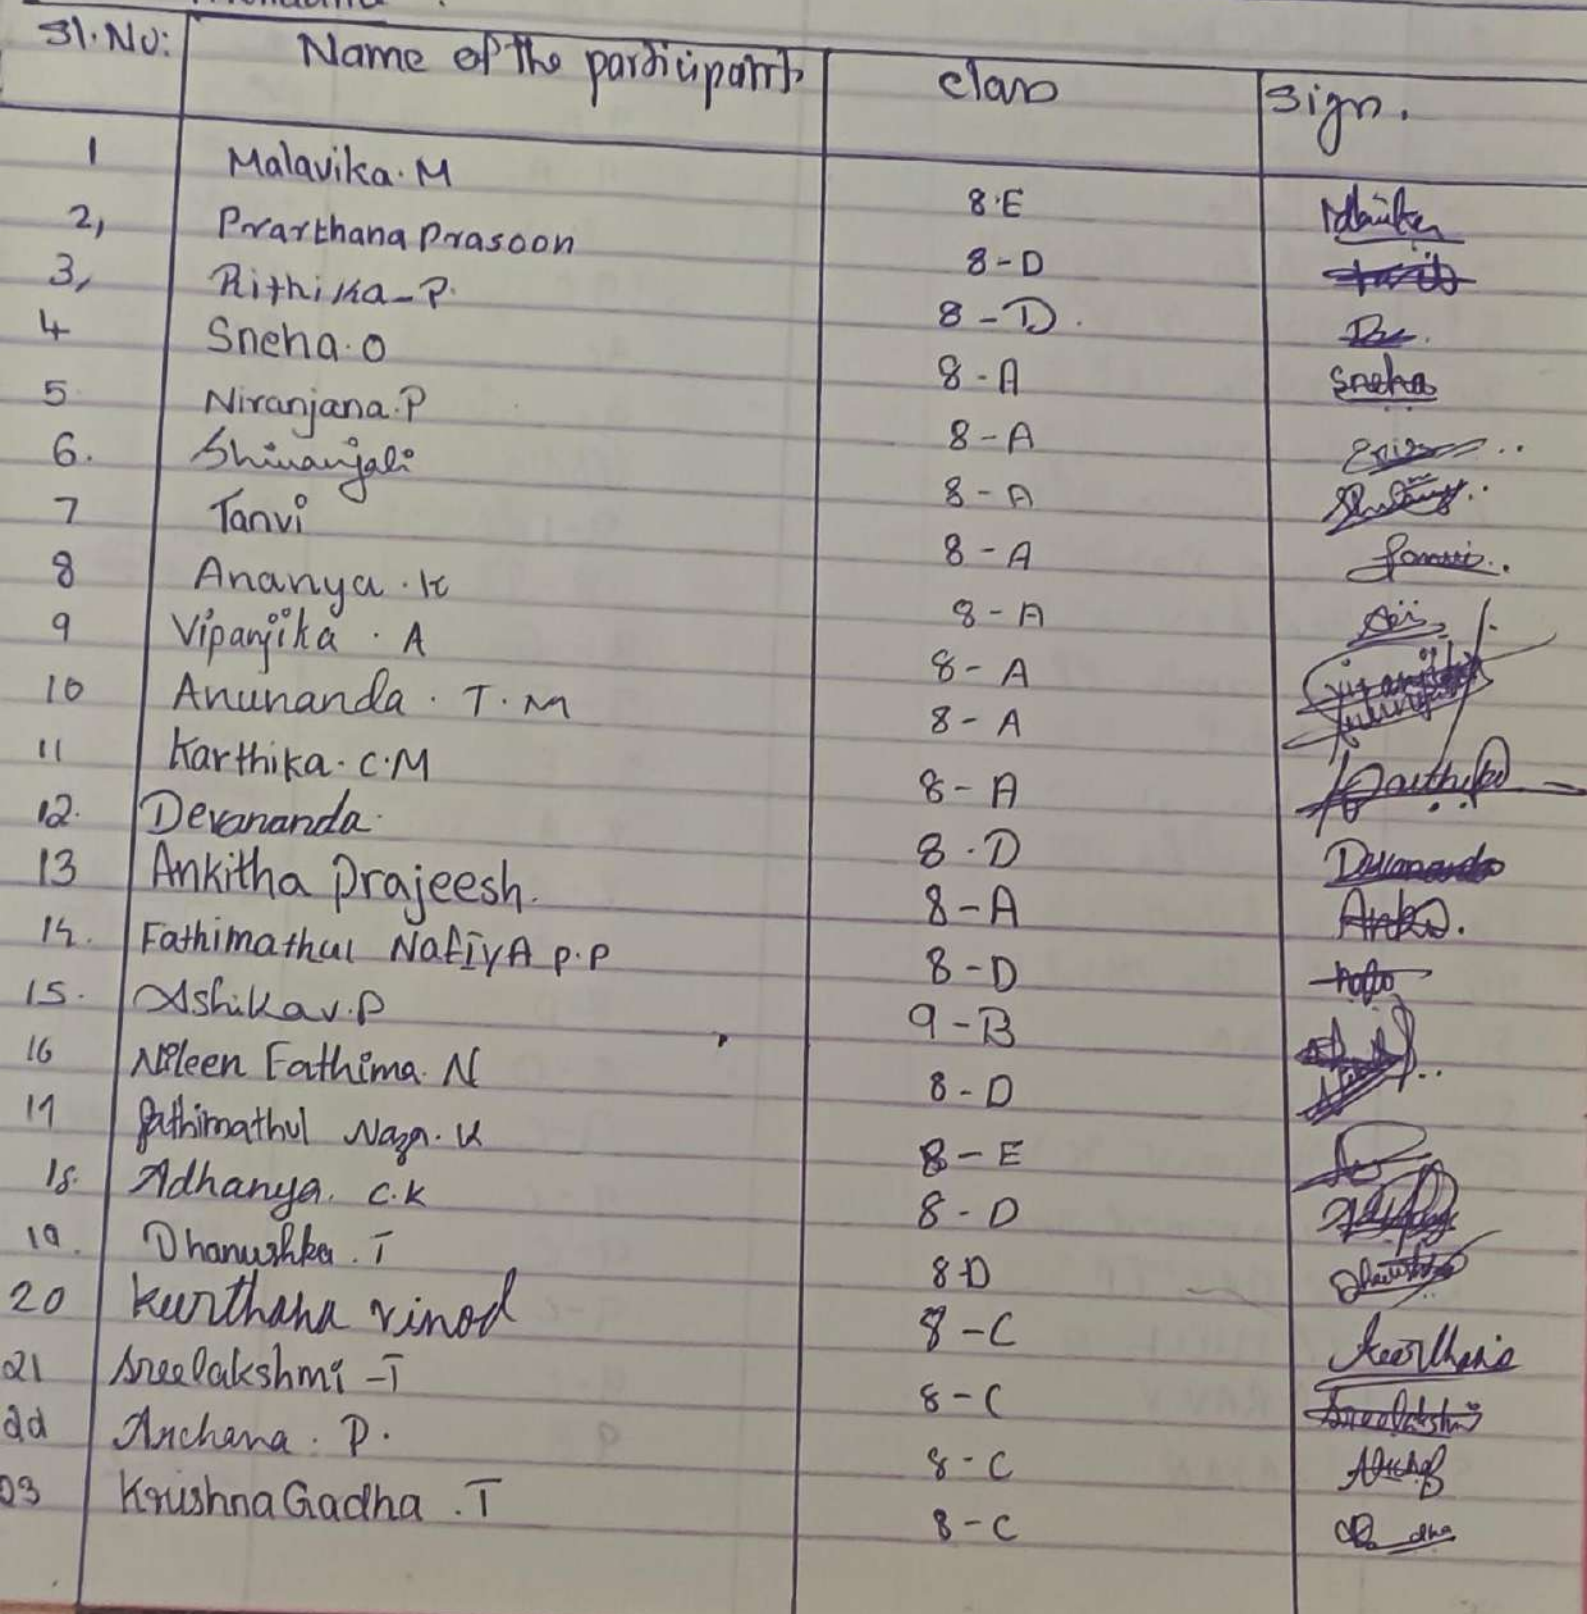 Sl.No: Name of the participants class Sign.
1 Malavika.M 8.E Malavika
2, Prarthana Prasoon 8-D
3, Rithika-P. 8-D.
4 Sneha.O 8-A Sneha
5 Niranjana.P 8-A
6. Shivanjali 8-A
7 Tanvi 8-A
8 Ananya.K 8-A
9 Vipanjika.A 8-A
10 Anunanda.T.M 8-A
11 Karthika.C.M 8-A Karthika
12. Devananda. 8.D Devananda
13 Ankitha Prajeesh. 8-A
14. Fathimathul NafIyA P.P 8-D
15. Ashika v.P 9-B
16 Nileen Fathima.N 8-D
17 Fathimathul K 8-E
18. Adhanya. C.K 8-D
19. Dhanushka.T 8-D
20 keerthana vinod 8-C keerthana
21 Sreelakshmi-T 8-C Sreelakshmi
22 Archana.P. 8-C
23 KrishnaGadha.T 8-C